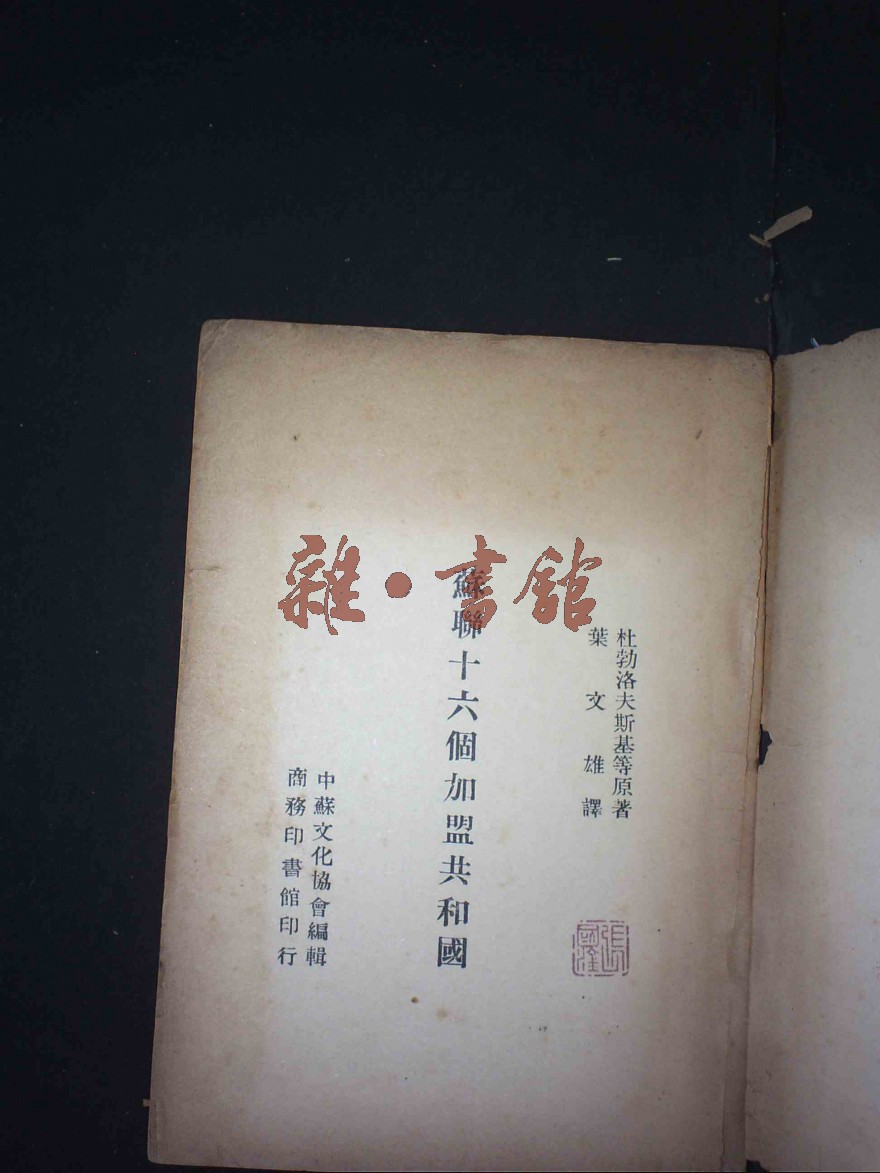 雜·書館
杜勃洛夫斯基等原著
葉文雄譯
蘇聯十六個加盟共和國
中蘇文化協會編輯
商務印書館印行